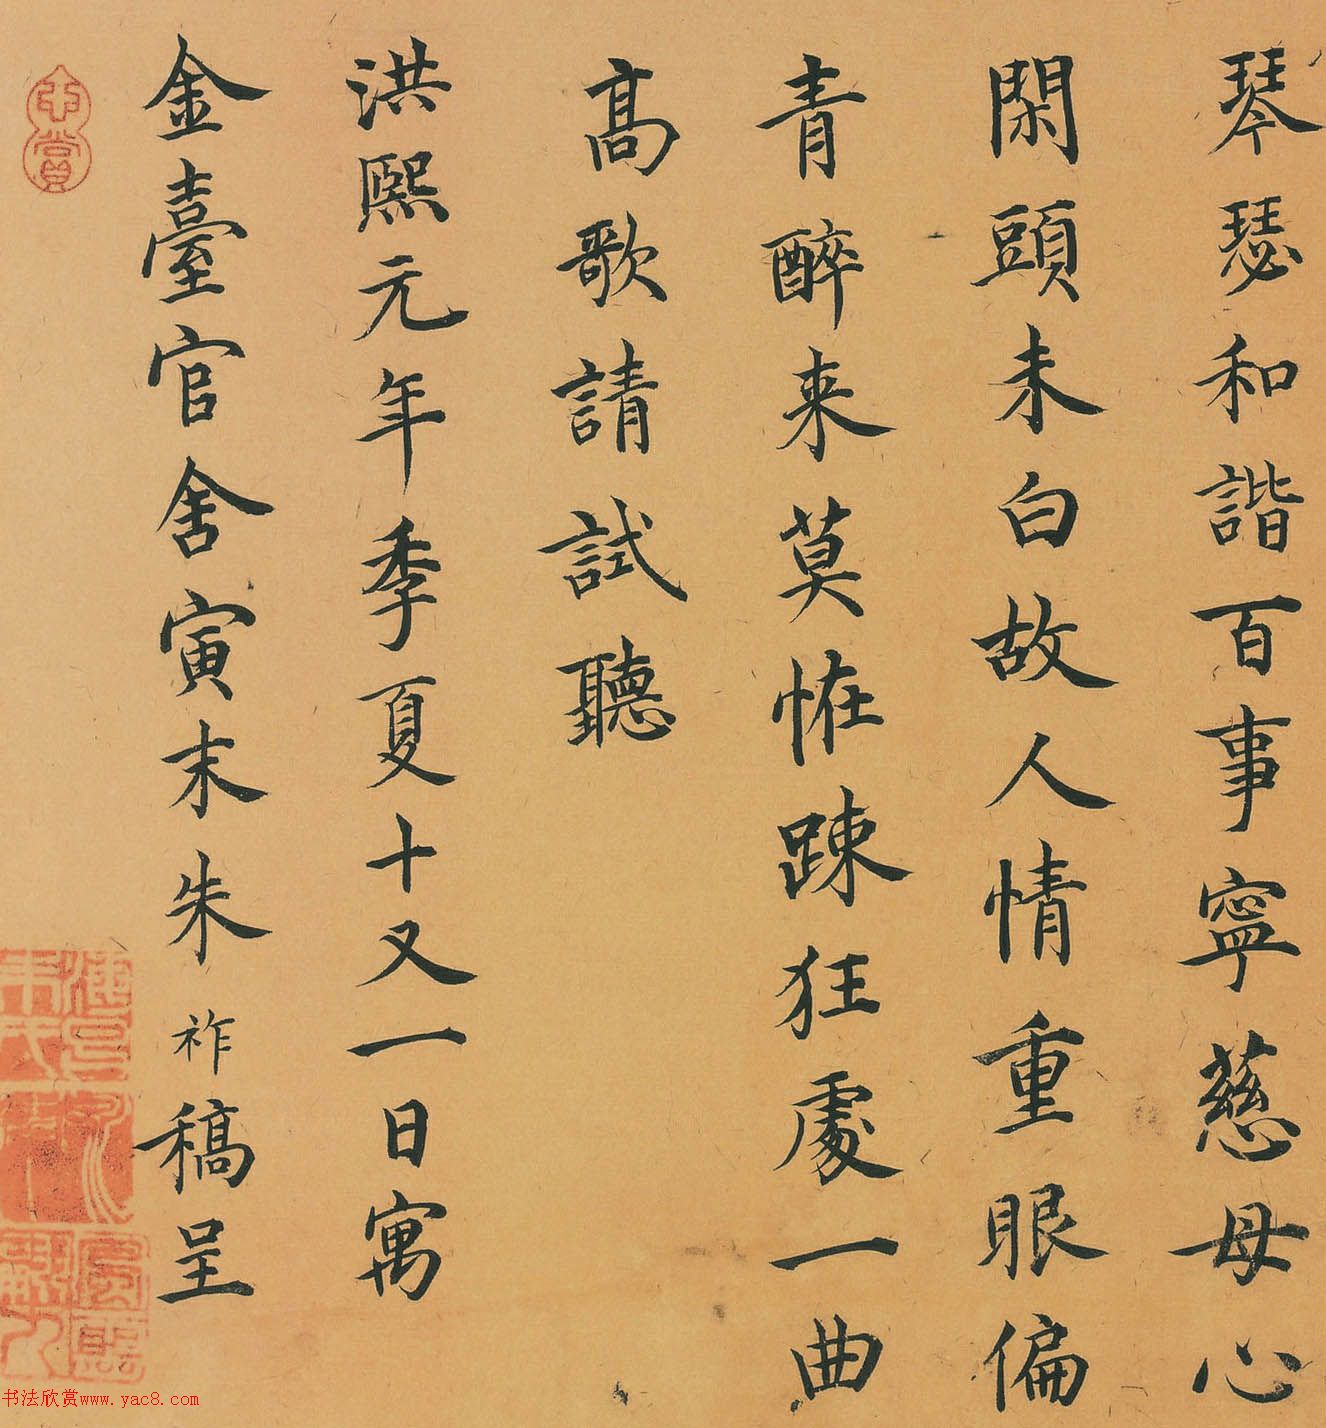 琴瑟和諧百事寧慈母心
閑頭未白故人情重眼偏
青醉来莫恠踈狂處一曲
高歌請試聽
洪熙元年季夏十又一日寓
金臺官舍寅末朱祚稿呈
賞
书法欣赏www.yac8.com